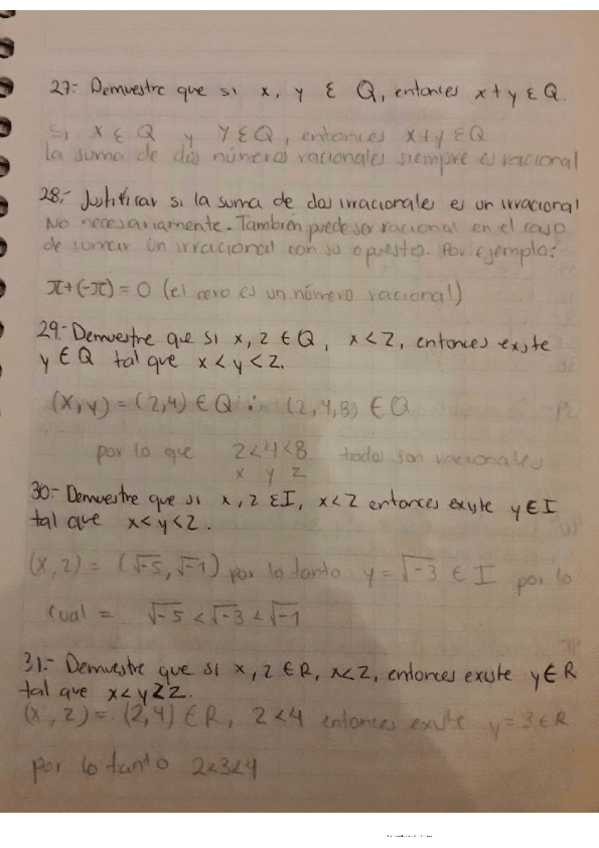 27.- Demuestre que si x, y ∈ Q, entonces x+y ∈ Q.
Si x ∈ Q y y ∈ Q, entonces x+y ∈ Q
la suma de dos números racionales siempre es racional
28.- Justificar si la suma de dos irracionales es un irracional
No necesariamente. También puede ser racional en el caso
de sumar un irracional con su opuesto. Por ejemplo:
π+(-π) = 0 (el cero es un número racional)
29.- Demuestre que si x, z ∈ Q, x < z, entonces existe
y ∈ Q tal que x < y < z.
(x, y) = (2,4) ∈ Q ∴ (2,4,8) ∈ Q
por lo que 2<4<8 todos son racionales
x y z
30.- Demuestre que si x, z ∈ I, x < z entonces existe y ∈ I
tal que x < y < z.
(x, z) = (√-5, √-1) por lo tanto y = √-3 ∈ I por lo
cual = √-5 < √-3 < √-1
31.- Demuestre que si x, z ∈ R, x<z, entonces existe y ∈ R
tal que x < y < z.
(x, z) = (2,4) ∈ R, 2<4 entonces existe y = 3 ∈ R
por lo tanto 2<3<4